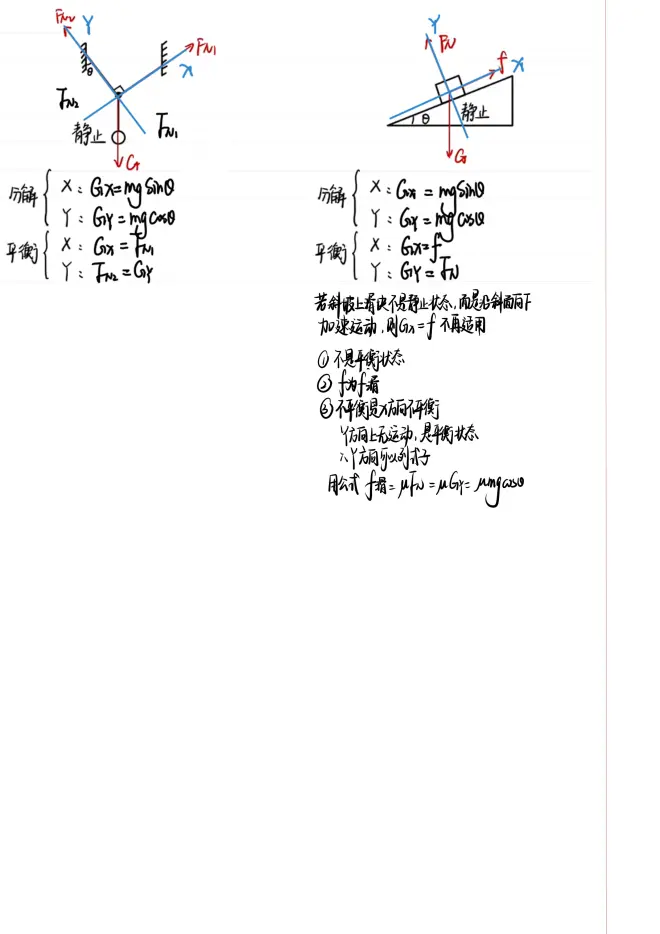 FN2 Y
FN1
θ
X
FN2
静止
FN1
G
分解 { X: Gx=mgsinθ
Y: GY=mgcosθ
平衡 { X: Gx=FN1
Y: FN2=GY
Y
FN
f X
静止
θ
G
分解 { X: Gx=mgsinθ
Y: GY=mgcosθ
平衡 { X: Gx=f
Y: GY=FN
若斜坡上滑块不是静止状态,而是沿斜面向下
加速运动,则Gx=f 不再适用
① 不是平衡状态
② f为f滑
③ 不平衡是X方向不平衡
Y方向上无运动,是平衡状态
∴Y方向可以列式子
用公式 f滑=μFN=μGY=μmgcosθ